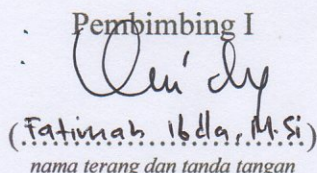 Pembimbing I
(Fatimah Ibda, M.Si)
nama terang dan tanda tangan